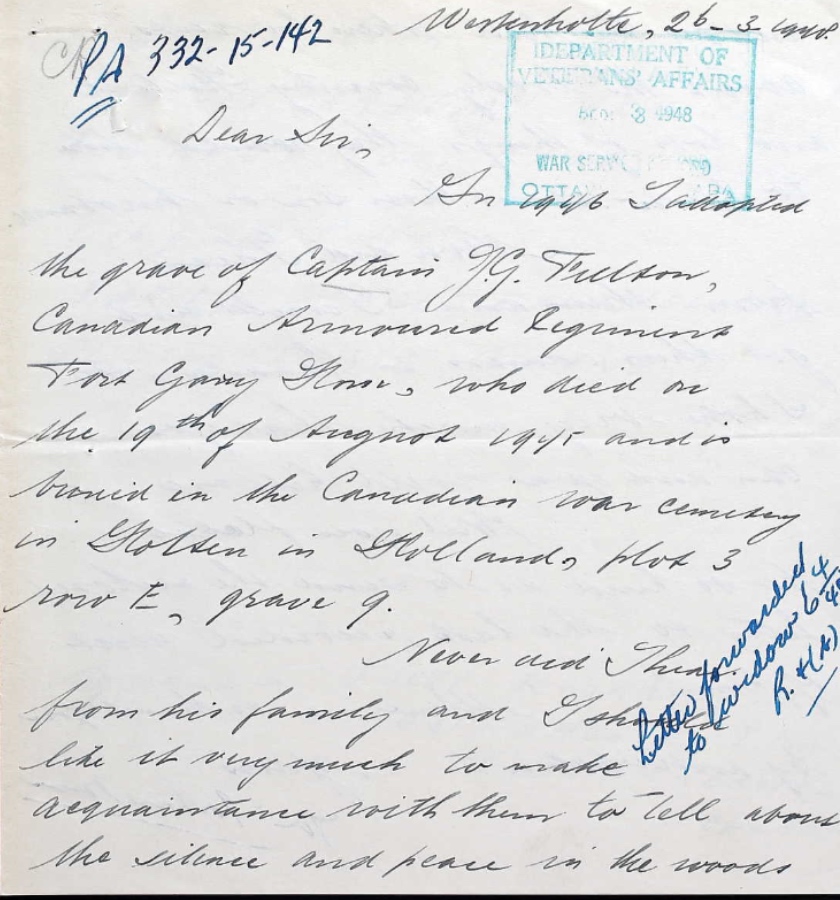 Westenholte, 26-3-1948.
PA 332-15-142
DEPARTMENT OF
VETERANS' AFFAIRS
3 1948
WAR SERVICE
OTTAWA
Dear Sir,
In 1946 I adopted
the grave of Captain J.G. Fulton,
Canadian Armoured Regiment
Fort Garry Horse, who died on
the 19th of August 1945 and is
buried in the Canadian war cemetery
in Holten in Holland, plot 3
row E, grave 9.
Never did I hear
from his family and I should
like it very much to make
acquaintance with them to tell about
the silence and peace in the woods
Letter forwarded
to widow 6/4/48
R.